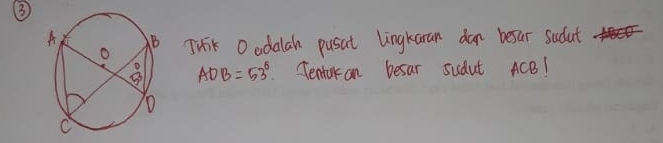 ③
A
B
O
53°
D
C
Titik O adalah pusat lingkaran dan besar sudut
ADB = 53°. Tentukan besar sudut ACB!